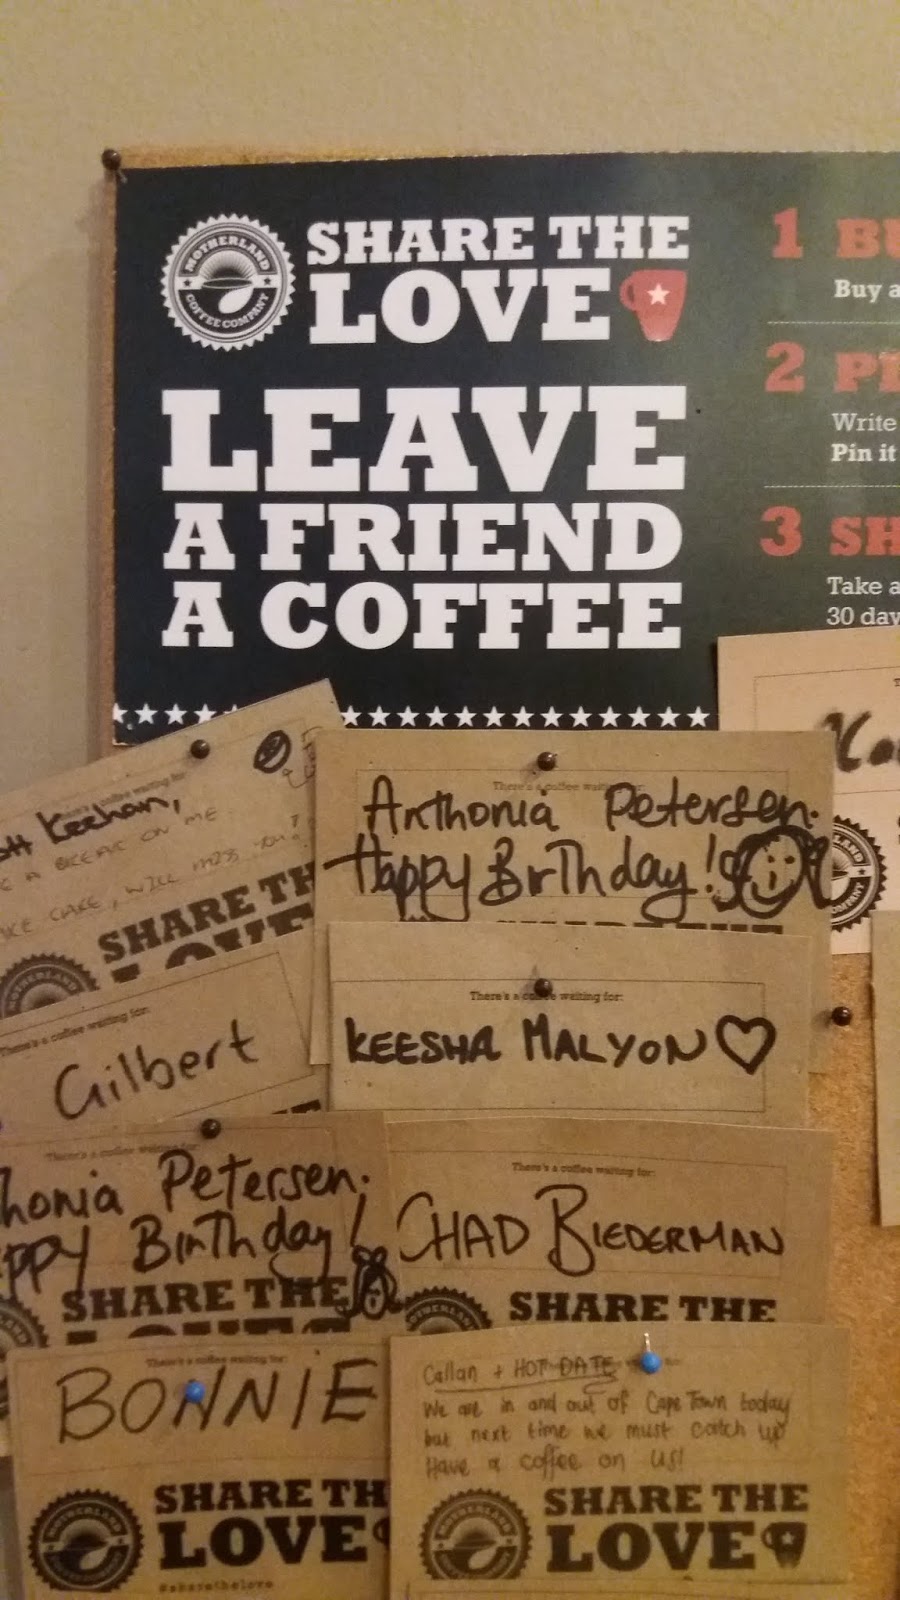 MOTHERLAND
COFFEE COMPANY
SHARE THE
LOVE
LEAVE
A FRIEND
A COFFEE
1 BU
Buy a
2 PI
Write
Pin it
3 SH
Take a
30 day
There's a coffee waiting for:
Keehan,
A BREAK ON ME
CAKE, WILL MISS YOU!
SHARE TH
LOVE
MOTHERLAND
There's a coffee waiting for:
Anthonia Petersen.
Happy Birthday!
COMPANY
There's a coffee waiting for:
Gilbert
There's a coffee waiting for:
KEESHA MALYON
There's a coffee waiting for:
honia Petersen.
ppy Birthday!
SHARE THE
There's a coffee waiting for:
CHAD BIEDERMAN
MOTHERLAND
SHARE THE
There's a coffee waiting for:
BONNIE
MOTHERLAND
SHARE TH
LOVE
#sharethelove
for:
Callan + HOT DATE
We are in and out of Cape Town today
but next time we must catch up
Have a coffee on us!
MOTHERLAND
SHARE THE
LOVE